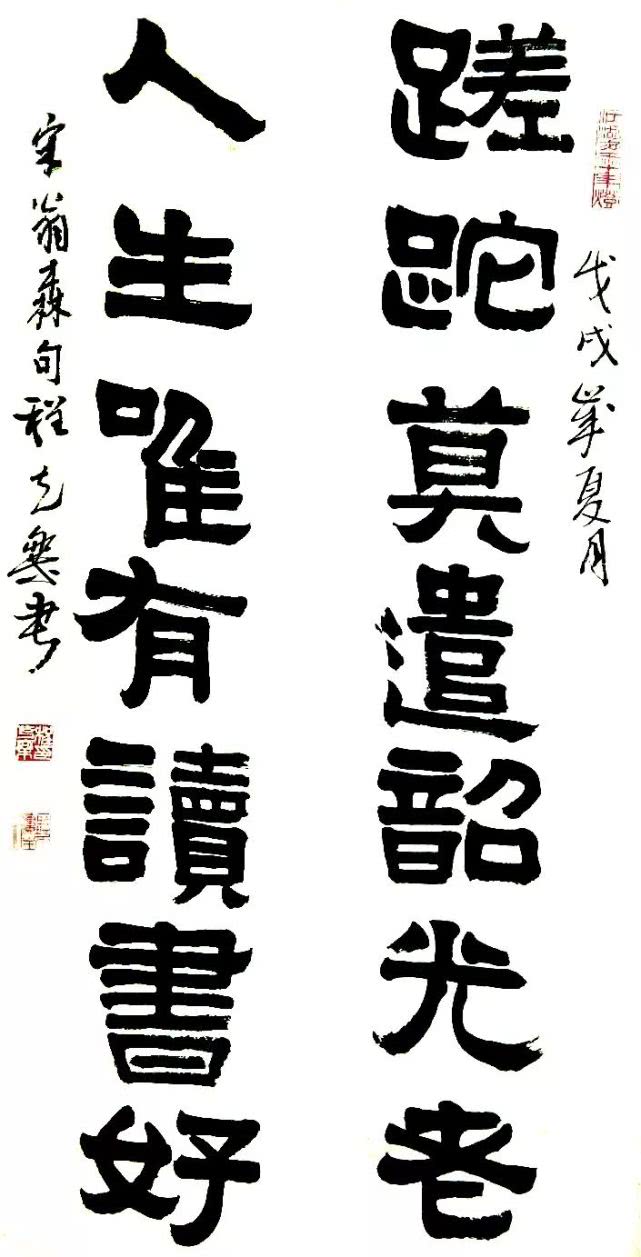 戊戌歲夏月
蹉跎莫遣韶光老
人生唯有讀書好
宋翁森句程書